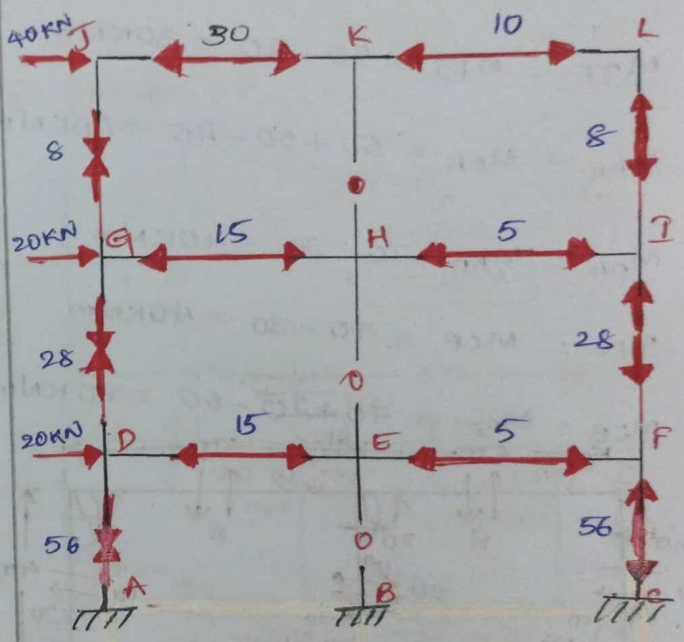 40KN J 30 K 10 L
8 8
20KN G 15 H 5 I
28 28
20KN D 15 E 5 F
56 56
A B C